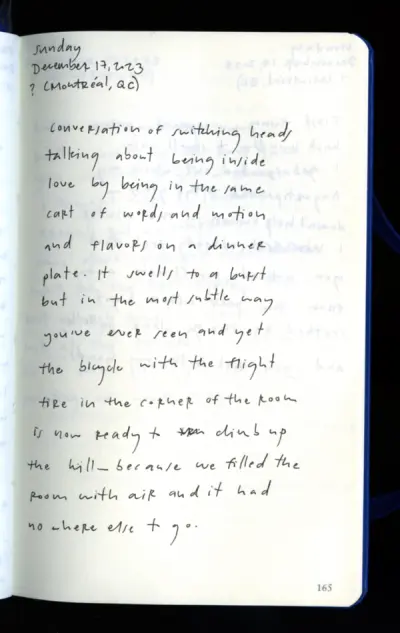 Sunday
December 17, 2023
? (Montréal, QC)
Conversation of switching heads
talking about being inside
love by being in the same
cart of words and motion
and flavors on a dinner
plate. It swells to a burst
but in the most subtle way
you've ever seen and yet
the bicycle with the flight
tire in the corner of the room
is now ready to climb up
the hill — because we filled the
room with air and it had
no where else to go.
165